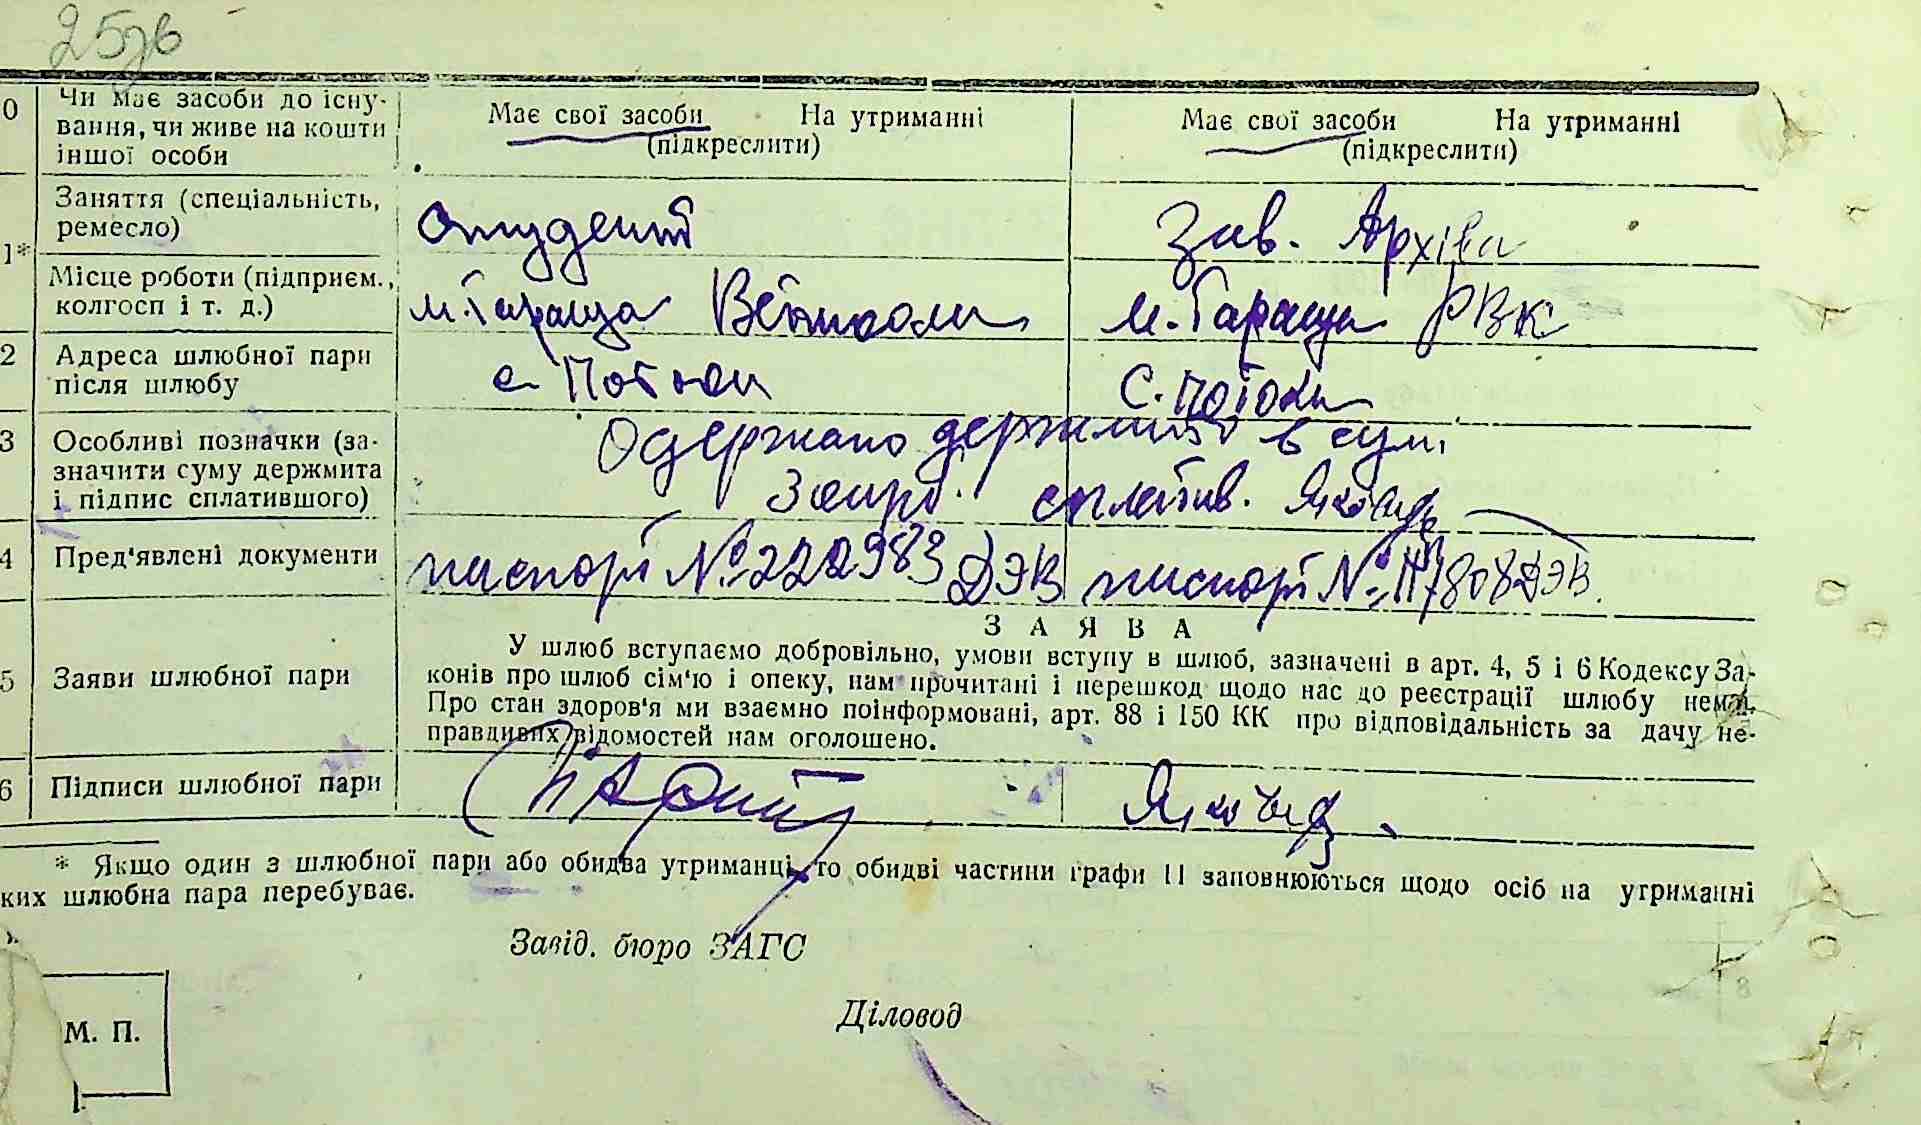 25зв
0 Чи має засоби до існу-
вання, чи живе на кошти
іншої особи
Має свої засоби На утриманні
(підкреслити)
Має свої засоби На утриманні
(підкреслити)
1* Заняття (спеціальність,
ремесло)
студент
Зав. Архіва
Місце роботи (підприєм.,
колгосп і т. д.)
м. Тараща
м. Тараща РВК
2 Адреса шлюбної пари
після шлюбу
с. Потоки
С. Потоки
3 Особливі позначки (за-
значити суму держмита
і підпис сплатившого)
Одержано держмито в сум.
3 сплатив.
4 Пред'явлені документи
паспорт № 222983 ДЭВ
паспорт № ДЭВ.
5 Заяви шлюбної пари
ЗАЯВА
У шлюб вступаємо добровільно, умови вступу в шлюб, зазначені в арт. 4, 5 і 6 Кодексу За-
конів про шлюб сім'ю і опеку, нам прочитані і перешкод щодо нас до реєстрації шлюбу немає.
Про стан здоров'я ми взаємно поінформовані, арт. 88 і 150 КК про відповідальність за дачу не-
правдивих відомостей нам оголошено.
6 Підписи шлюбної пари
* Якщо один з шлюбної пари або обидва утриманці, то обидві частини графи 11 заповнюються щодо осіб на утриманні
ких шлюбна пара перебуває.
Завід. бюро ЗАГС
Діловод
М. П.